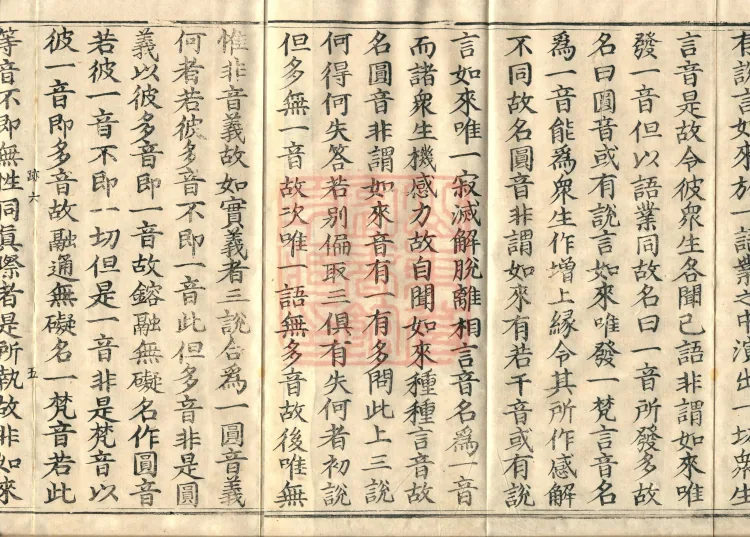 有說言如來於一語業之中演出一切衆生
言音是故令彼衆生各聞己語非謂如來唯
發一音但以語業同故名曰一音所發多故
名曰圓音或有說言如來唯發一梵言音名
爲一音能爲衆生作增上緣令其所作感解
不同故名圓音非謂如來有若干音或有說
言如來唯一寂滅解脫離相言音名爲一音
而諸衆生機感力故自聞如來種種言音故
名圓音非謂如來音有一有多問此上三說
何得何失答若別偏取三俱有失何者初說
但多無一音故次唯一語無多音故後唯無
惟非音義故如實義者三說合爲一圓音義
何者若彼多音不即一音此但多音非是圓
義以彼多音即一音故鎔融無礙名作圓音
若彼一音不即一切但是一音非是梵音以
彼一音即多音故融通無礙名一梵音若此
跡六 五
等音不即無性同眞際者是所執故非如來